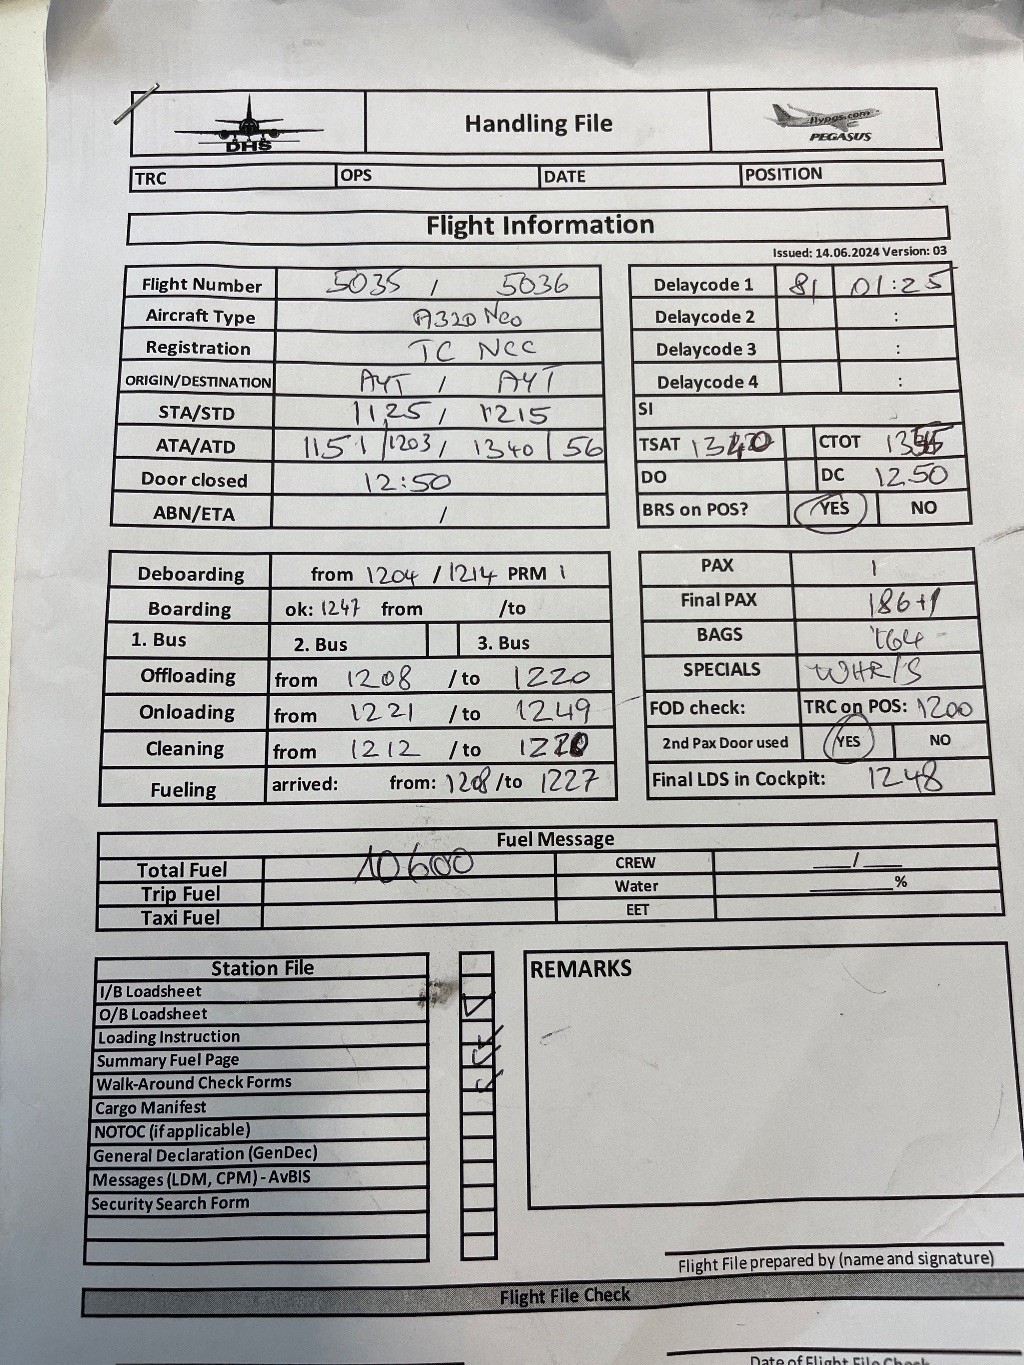 DHS Handling File flypgs.com PEGASUS
TRC OPS DATE POSITION
Flight Information
Issued: 14.06.2024 Version: 03
Flight Number 5035 / 5036
Aircraft Type A320 Neo
Registration TC NCC
ORIGIN/DESTINATION AYT / AYT
STA/STD 1125 / 1215
ATA/ATD 1151 /1203 / 1340 / 56
Door closed 12:50
ABN/ETA /
Delaycode 1 81 01:25
Delaycode 2 :
Delaycode 3 :
Delaycode 4 :
SI
TSAT CTOT
DO DC 1250
BRS on POS? YES NO
Deboarding from 1204 / 1214 PRM 1
Boarding ok: 1247 from /to
1. Bus 2. Bus 3. Bus
Offloading from 1208 / to 1220
Onloading from 1221 / to 1249
Cleaning from 1212 / to
Fueling arrived: from: 1208 /to 1227
PAX
Final PAX 186+1
BAGS
SPECIALS
FOD check: TRC on POS: 1200
2nd Pax Door used YES NO
Final LDS in Cockpit: 1248
Fuel Message
Total Fuel 10600 CREW /
Trip Fuel Water %
Taxi Fuel EET
Station File
I/B Loadsheet
O/B Loadsheet
Loading Instruction
Summary Fuel Page
Walk-Around Check Forms
Cargo Manifest
NOTOC (if applicable)
General Declaration (GenDec)
Messages (LDM, CPM) - AvBIS
Security Search Form
REMARKS
Flight File prepared by (name and signature)
Flight File Check
Date of Flight File Check